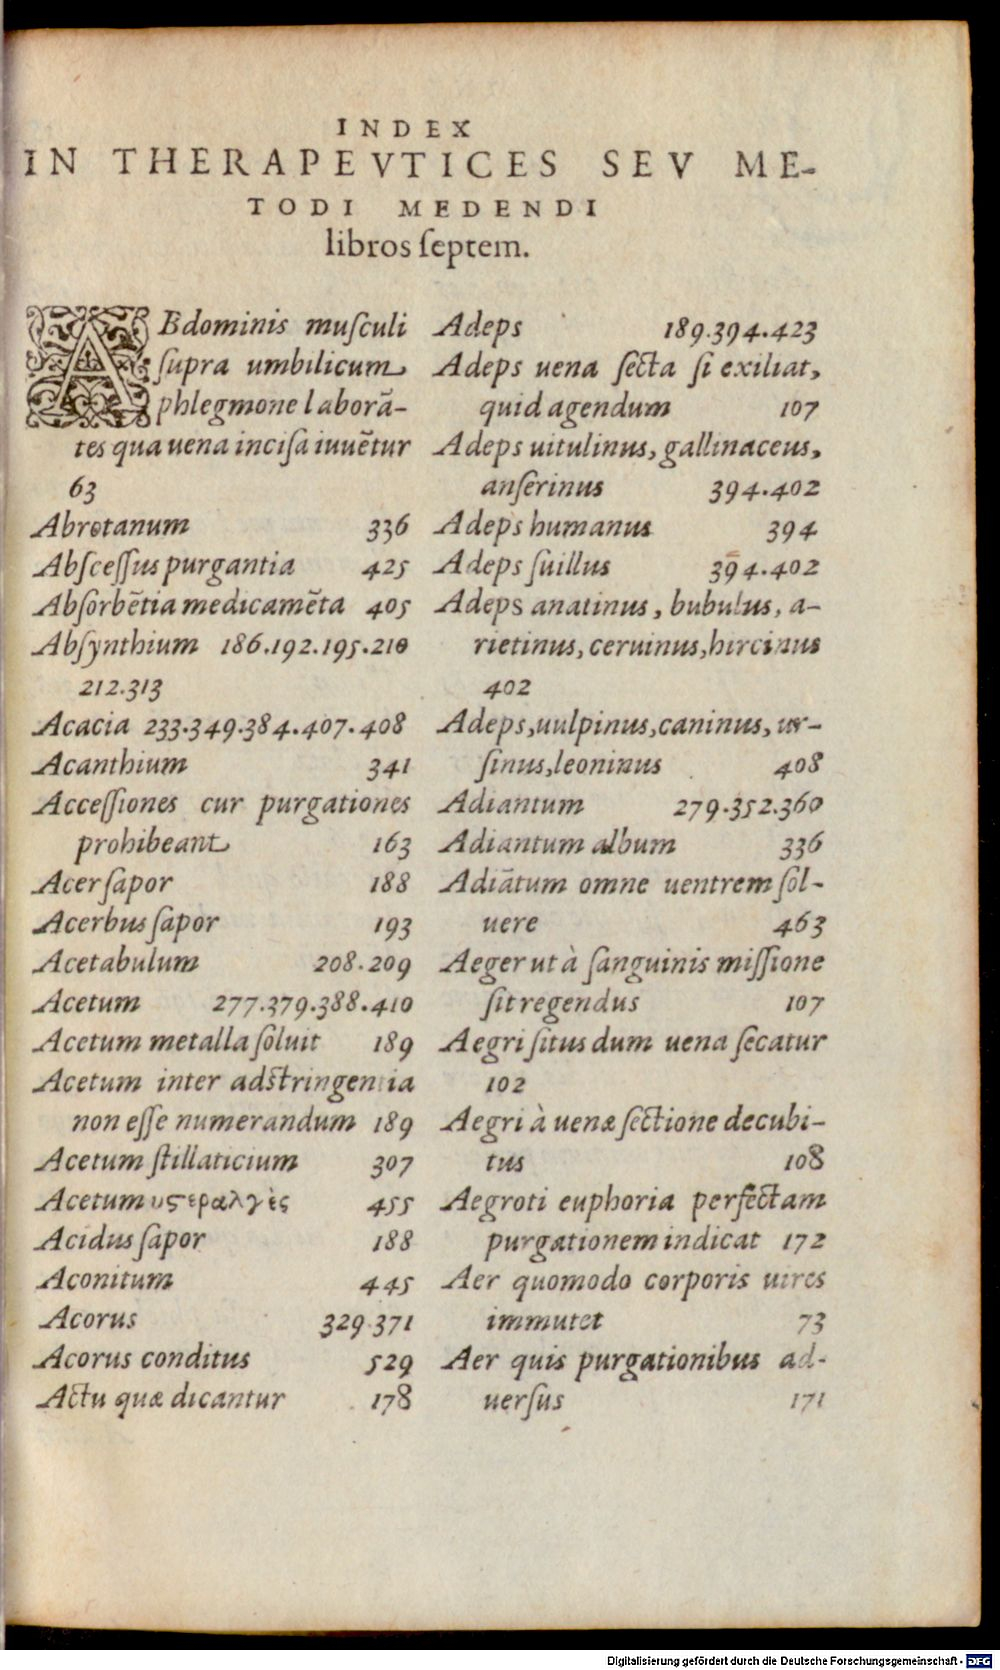 INDEX
IN THERAPEVTICES SEV ME-
TODI MEDENDI
libros ſeptem.
ABdominis muſculi
ſupra umbilicum
phlegmone laborã-
tes qua uena inciſa iuuẽtur
63
Abrotanum 336
Abſceſſus purgantia 425
Abſorbẽtia medicamẽta 405
Abſynthium 186.192.195.210
212.313
Acacia 233.349.384.407.408
Acanthium 341
Acceſſiones cur purgationes
prohibeant 163
Acer ſapor 188
Acerbus ſapor 193
Acetabulum 208.209
Acetum 277.379.388.410
Acetum metalla ſoluit 189
Acetum inter adſtringentia
non eſſe numerandum 189
Acetum ſtillaticium 307
Acetum υςεραλγὲς 455
Acidus ſapor 188
Aconitum 445
Acorus 329.371
Acorus conditus 529
Actu quæ dicantur 178
Adeps 189.394.423
Adeps uena ſecta ſi exiliat,
quid agendum 107
Adeps uitulinus, gallinaceus,
anſerinus 394.402
Adeps humanus 394
Adeps ſuillus 394.402
Adeps anatinus, bubulus, a-
rietinus, ceruinus, hircinus
402
Adeps, uulpinus, caninus, ur-
ſinus, leoninus 408
Adiantum 279.352.360
Adiantum album 336
Adiãtum omne uentrem ſol-
uere 463
Aeger ut à ſanguinis miſſione
ſit regendus 107
Aegri ſitus dum uena ſecatur
102
Aegri à uenæ ſectione decubi-
tus 108
Aegroti euphoria perfectam
purgationem indicat 172
Aer quomodo corporis uires
immutet 73
Aer quis purgationibus ad-
uerſus 171
Digitalisierung gefördert durch die Deutsche Forschungsgemeinschaft - DFG